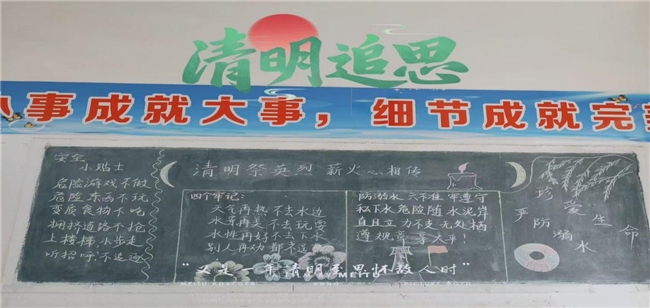 清明追思
小事成就大事，细节成就完美
安全
小贴士
危险游戏不做
危险东西不玩
变质食物不吃
拥挤道路不抢
上楼梯小步走
听招呼不追逐
清明祭英烈 薪火心相传
四个牢记：
天气再热不去水边
水库再支不去玩耍
水性再好不去
别人再劝都不
防溺水 六不准 牢遵守
私下水 危险随 水泥岸
直且立 力不支 无处栖
遵规章
珍爱生命
严防溺水
“又是一年清明至思怀故人时”